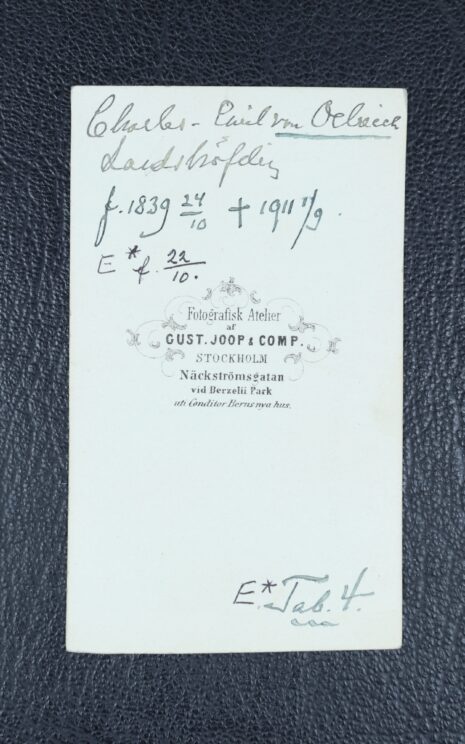 Charles-Emil von Oelreich
Landshöfding
f. 1839 24/10 + 1911 11/9.
E* f. 22/10.
Fotografisk Atelier
af
GUST. JOOP & COMP.
STOCKHOLM
Näckströmsgatan
vid Berzelii Park
uti Conditor Berus nya hus.
E* Tab. 4.